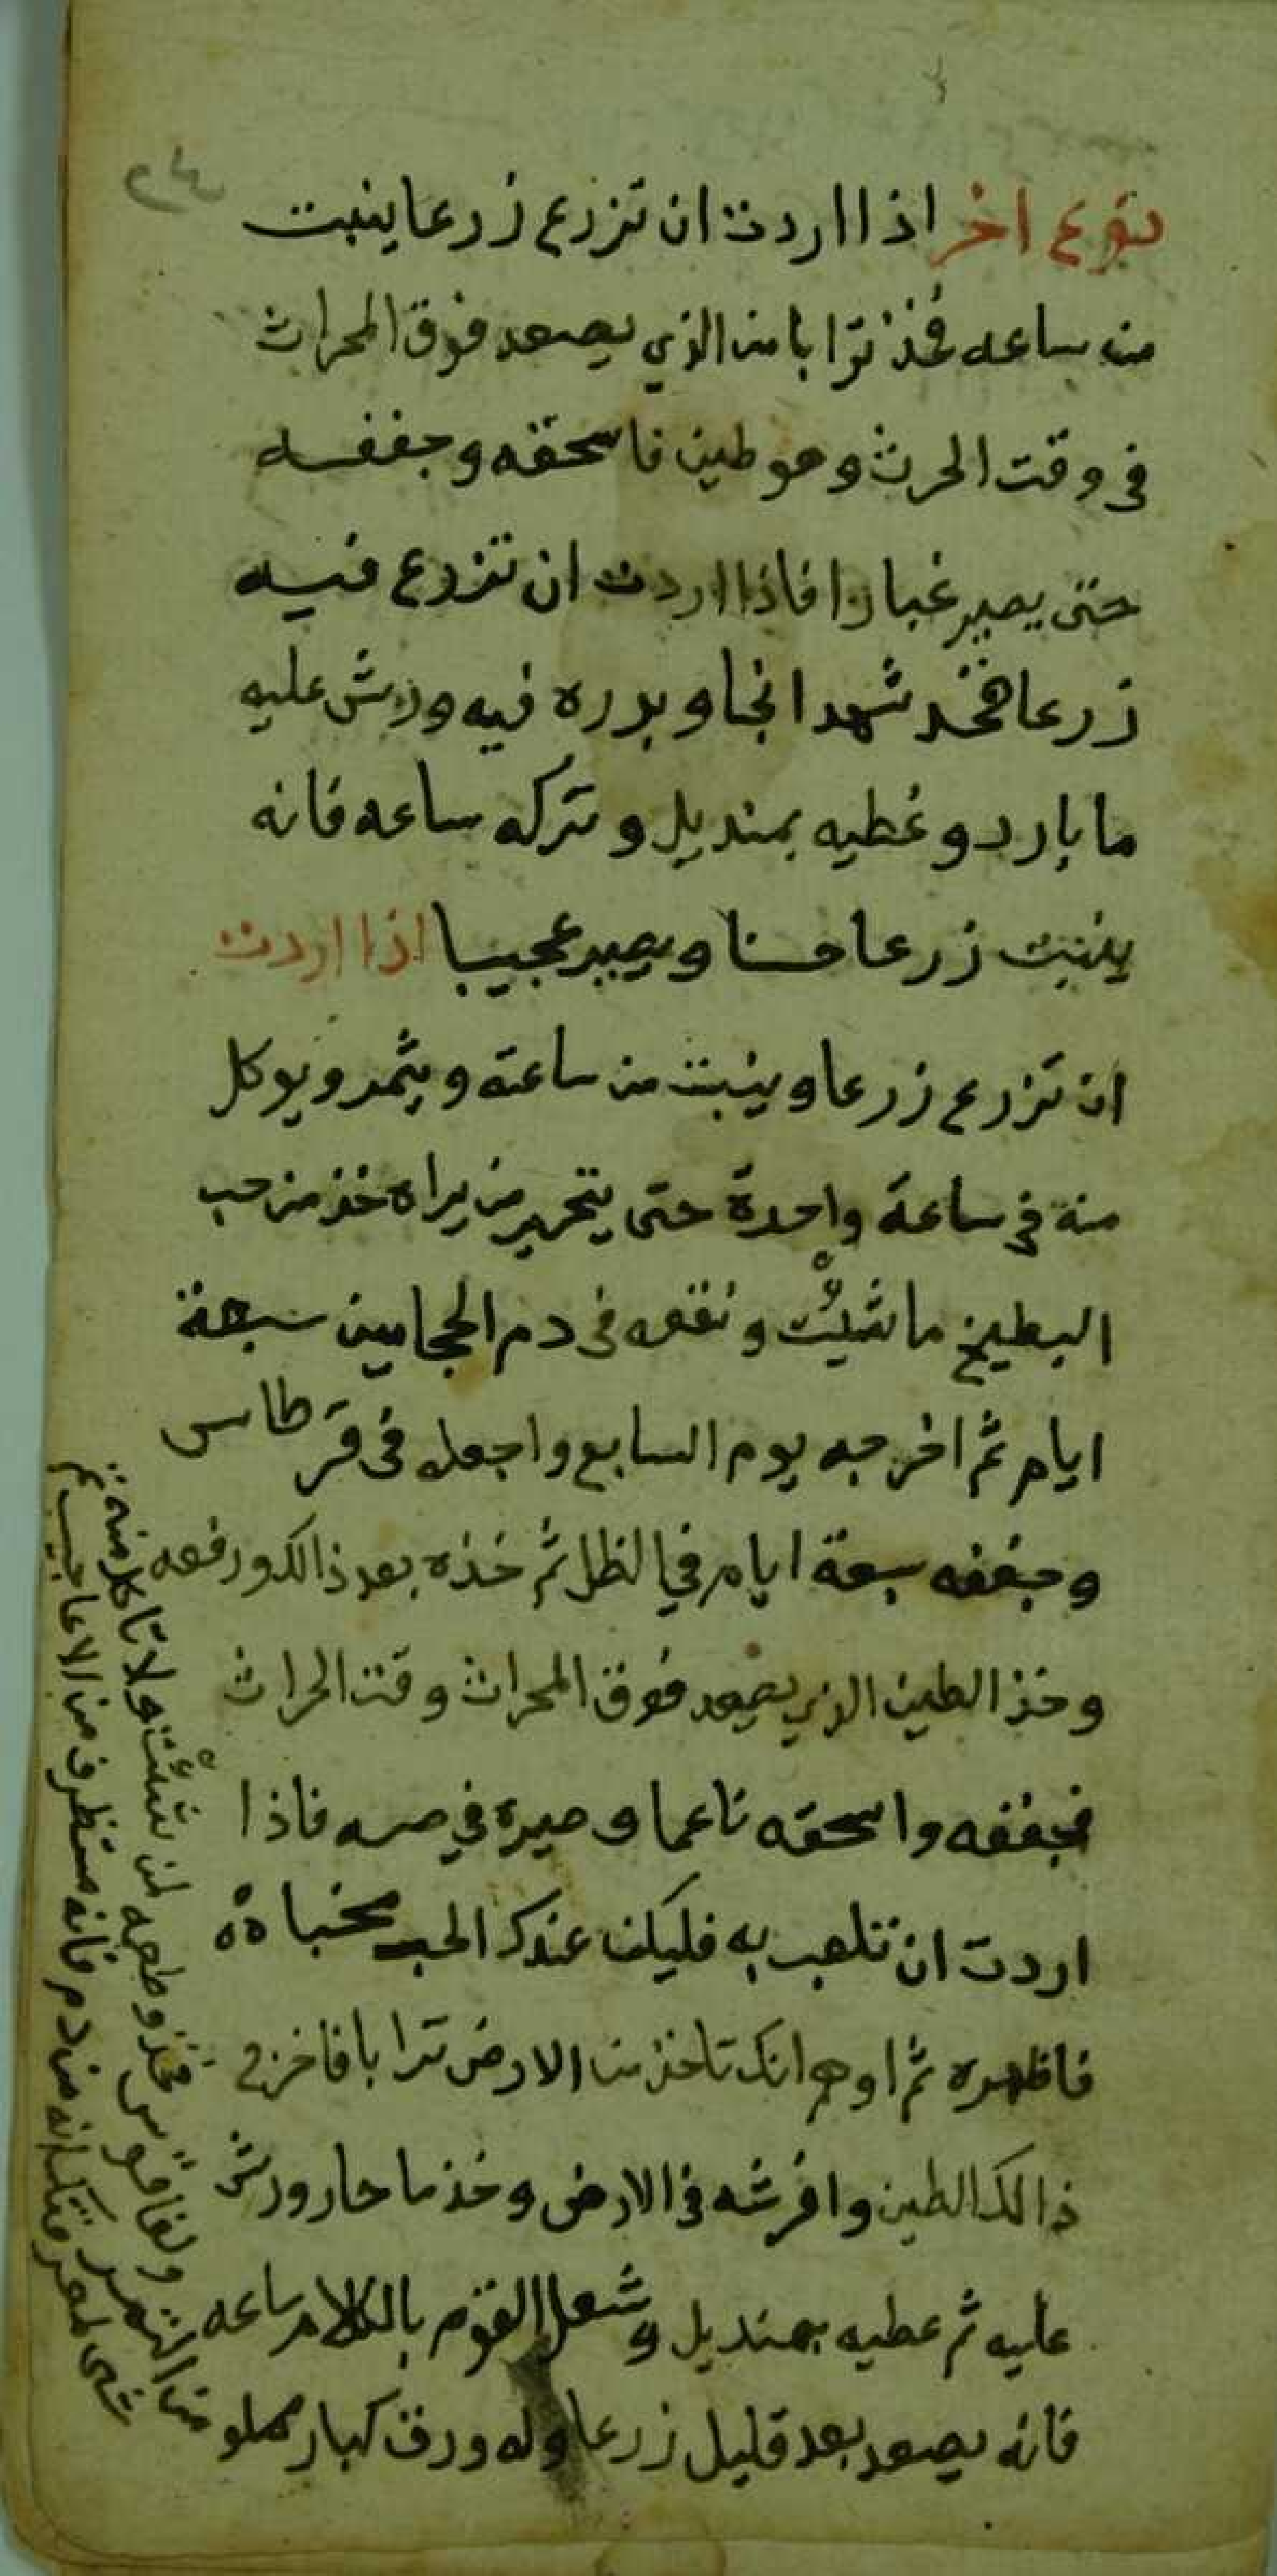 نوع اخر اذا اردت ان تزرع زرعا ينبت
من ساعه فخذ ترابا من الذي يصعد فوق المحراث
فى وقت الحرث وهو طين فاسحقه وجففه
حتى يصير غبارا فاذا اردت ان تزرع فيه
زرعا فخد شهدانجا وبدره فيه ورش عليه
ما بارد وغطيه بمنديل وتركه ساعه فانه
ينبت زرعا حسنا ويصير عجيبا اذا اردت
ان تزرع زرعا وينبت من ساعته ويثمر ويوكل
منه فى ساعة واحدة حتى يتحير من يراه خذ من حب
البطيخ ما شيئت ونقعه فى دم الحجامين سبعة
ايام ثم اخرجه يوم السابع واجعله فى قرطاس
وجففه سبعة ايام في الظل ثم خذه بعد ذالك ورفعه
وخذ الطين الذي يصعد فوق المحراث وقت الحراث
فجففه واسحقه ناعما وصيره في صره فاذا
اردت ان تلعب به فليكن عندك الحب مخباة
فاظهره ثم اوهم انك تاخذ من الارض ترابا فاخرج
ذالك الطين وافرشه فى الارض وخذ ما حار ورش
عليه ثم عطيه بمنديل وشغل القوم بالكلام ساعه
فانه يصعد بعد قليل زرعا وله ورق كبار مملو
من الثمر وفقوس فخذ وطعمه لمن شئت ولا تاكل منه
شى لانه من دم فانه مستظرف من الاعاجيب